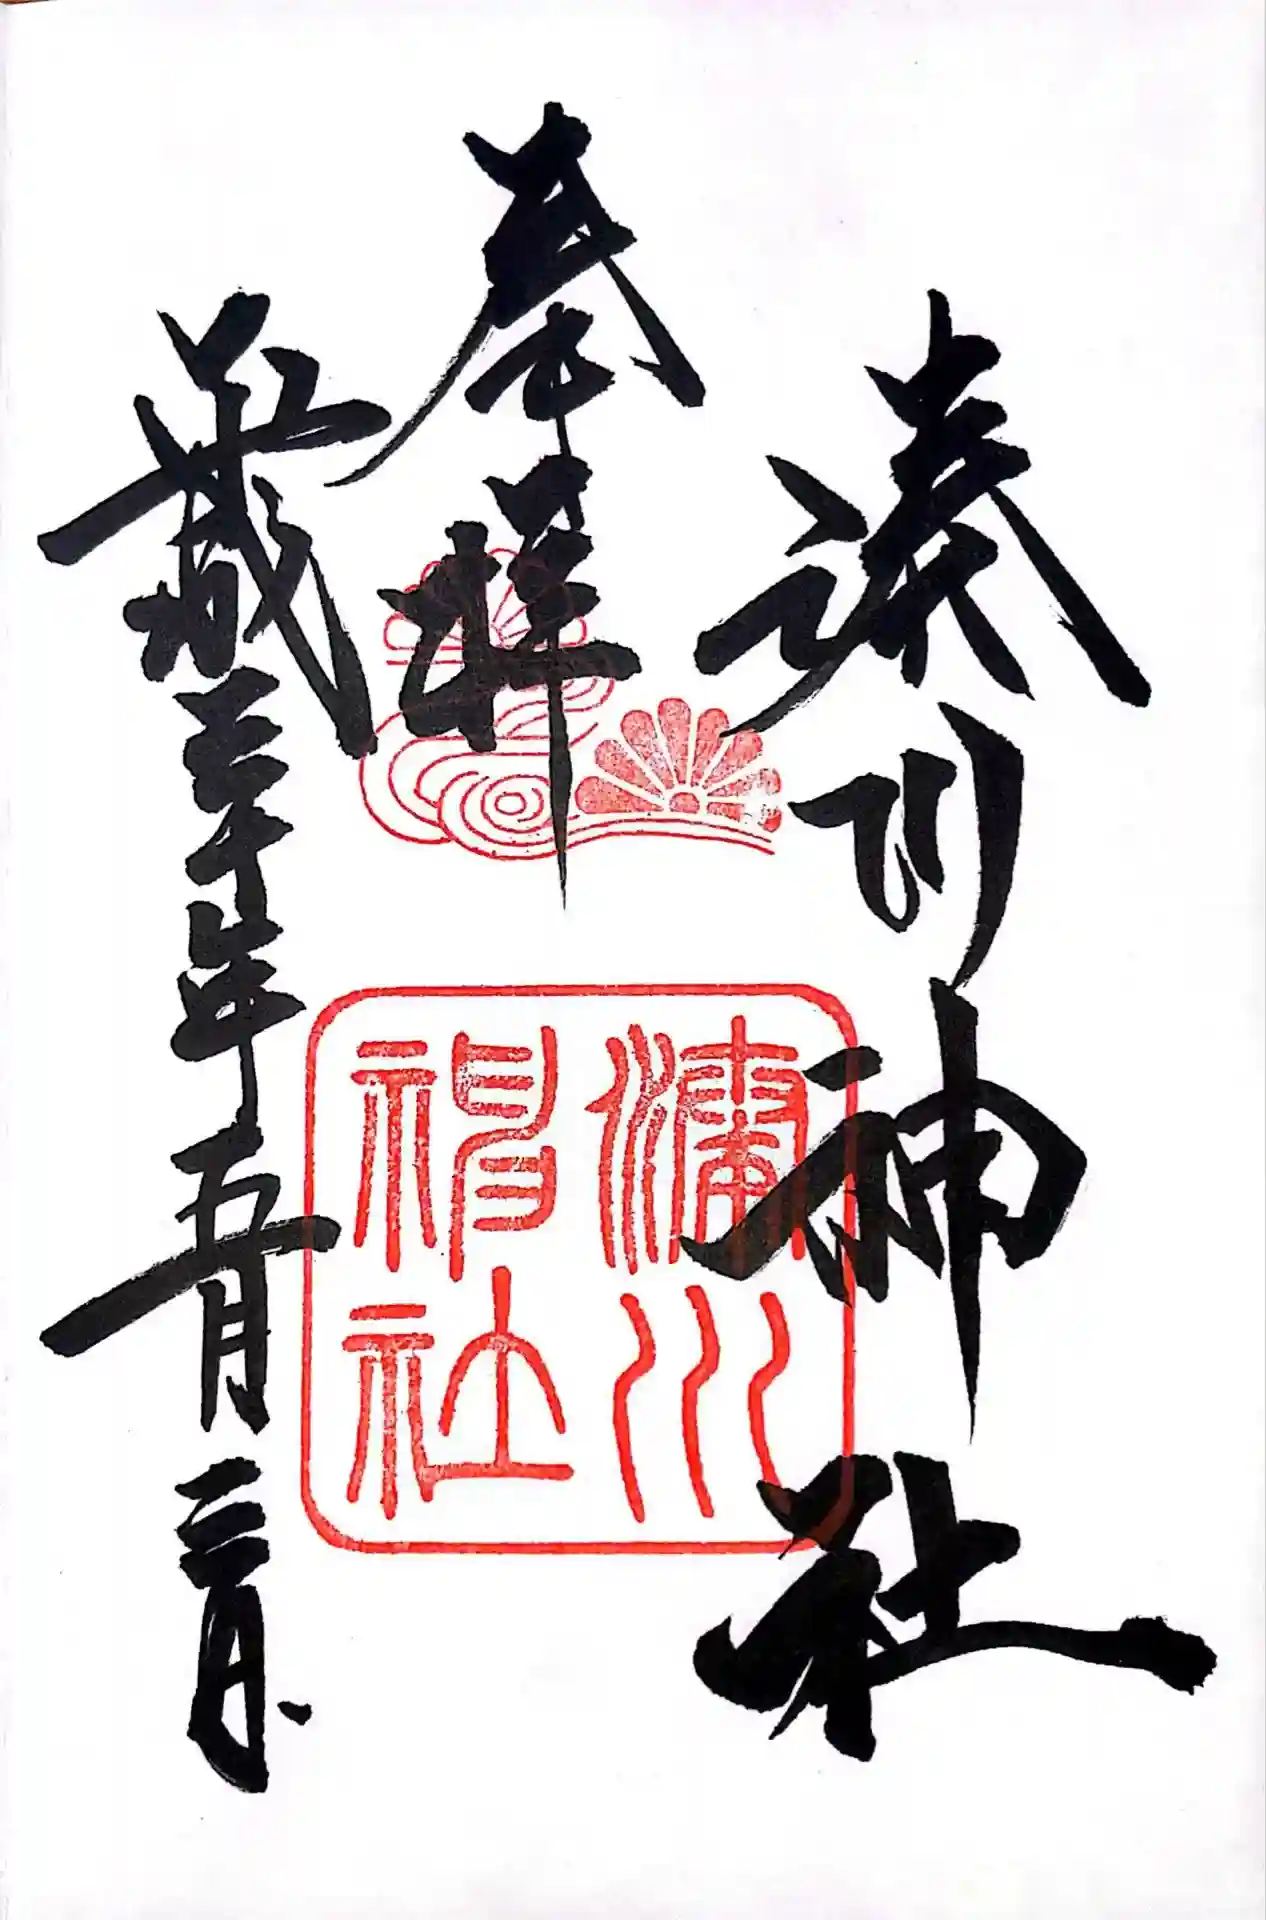 湊川神社
奉拝
平成三十年五月三日
湊川
神社